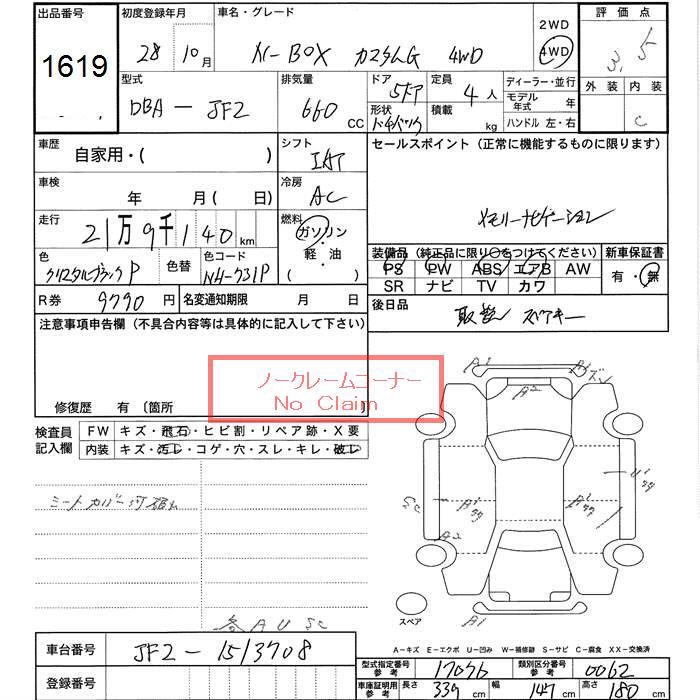 出品番号 初度登録年月 車名・グレード 2WD 評価点
1619 28 10月 N-BOX カスタムG 4WD 4WD 3.5
型式 排気量 ドア 定員 ディーラー・並行 外装 内装
DBA-JF2 660 CC 5ドア 4人 モデル年式 年 C
形状 積載 kg ハンドル 左・右
車歴 自家用・( ) シフト IAT セールスポイント (正常に機能するものに限ります)
車検 年 月 ( 日) 冷房 AC メモリーナビゲーション
走行 21万9千140km 燃料 ガソリン・軽・油 ( )
装備品 (純正品に限り○をつけてください) 新車保証書
色 クリスタルブラックP 色替 色コード NH-731P
PS PW ABS エアB AW 有・無
SR ナビ TV カワ
R券 9790円 名変通知期限 月 日 後日品 取説 スペアキー
注意事項申告欄 (不具合内容等は具体的に記入して下さい)
ノークレームコーナー
No Claim
修復歴 有 〔箇所 〕
検査員記入欄 FW キズ・飛石・ヒビ割・リペア跡・X要
内装 キズ・汚レ・コゲ・穴・スレ・キレ・破レ
A1 A1 ズン
A2
U1 ワク
A1 ワク A1 ワク
A2
スペア A1
各AUSC
A-キズ E-エクボ U-凹み W-補修跡 S-サビ C-腐食 XX-交換済
車台番号 JF2-1513708
登録番号
型式指定番号 参考 17076 類別区分番号 参考 0062
車庫証明用 参考 長さ 339 cm 幅 147 cm 高さ 180 cm